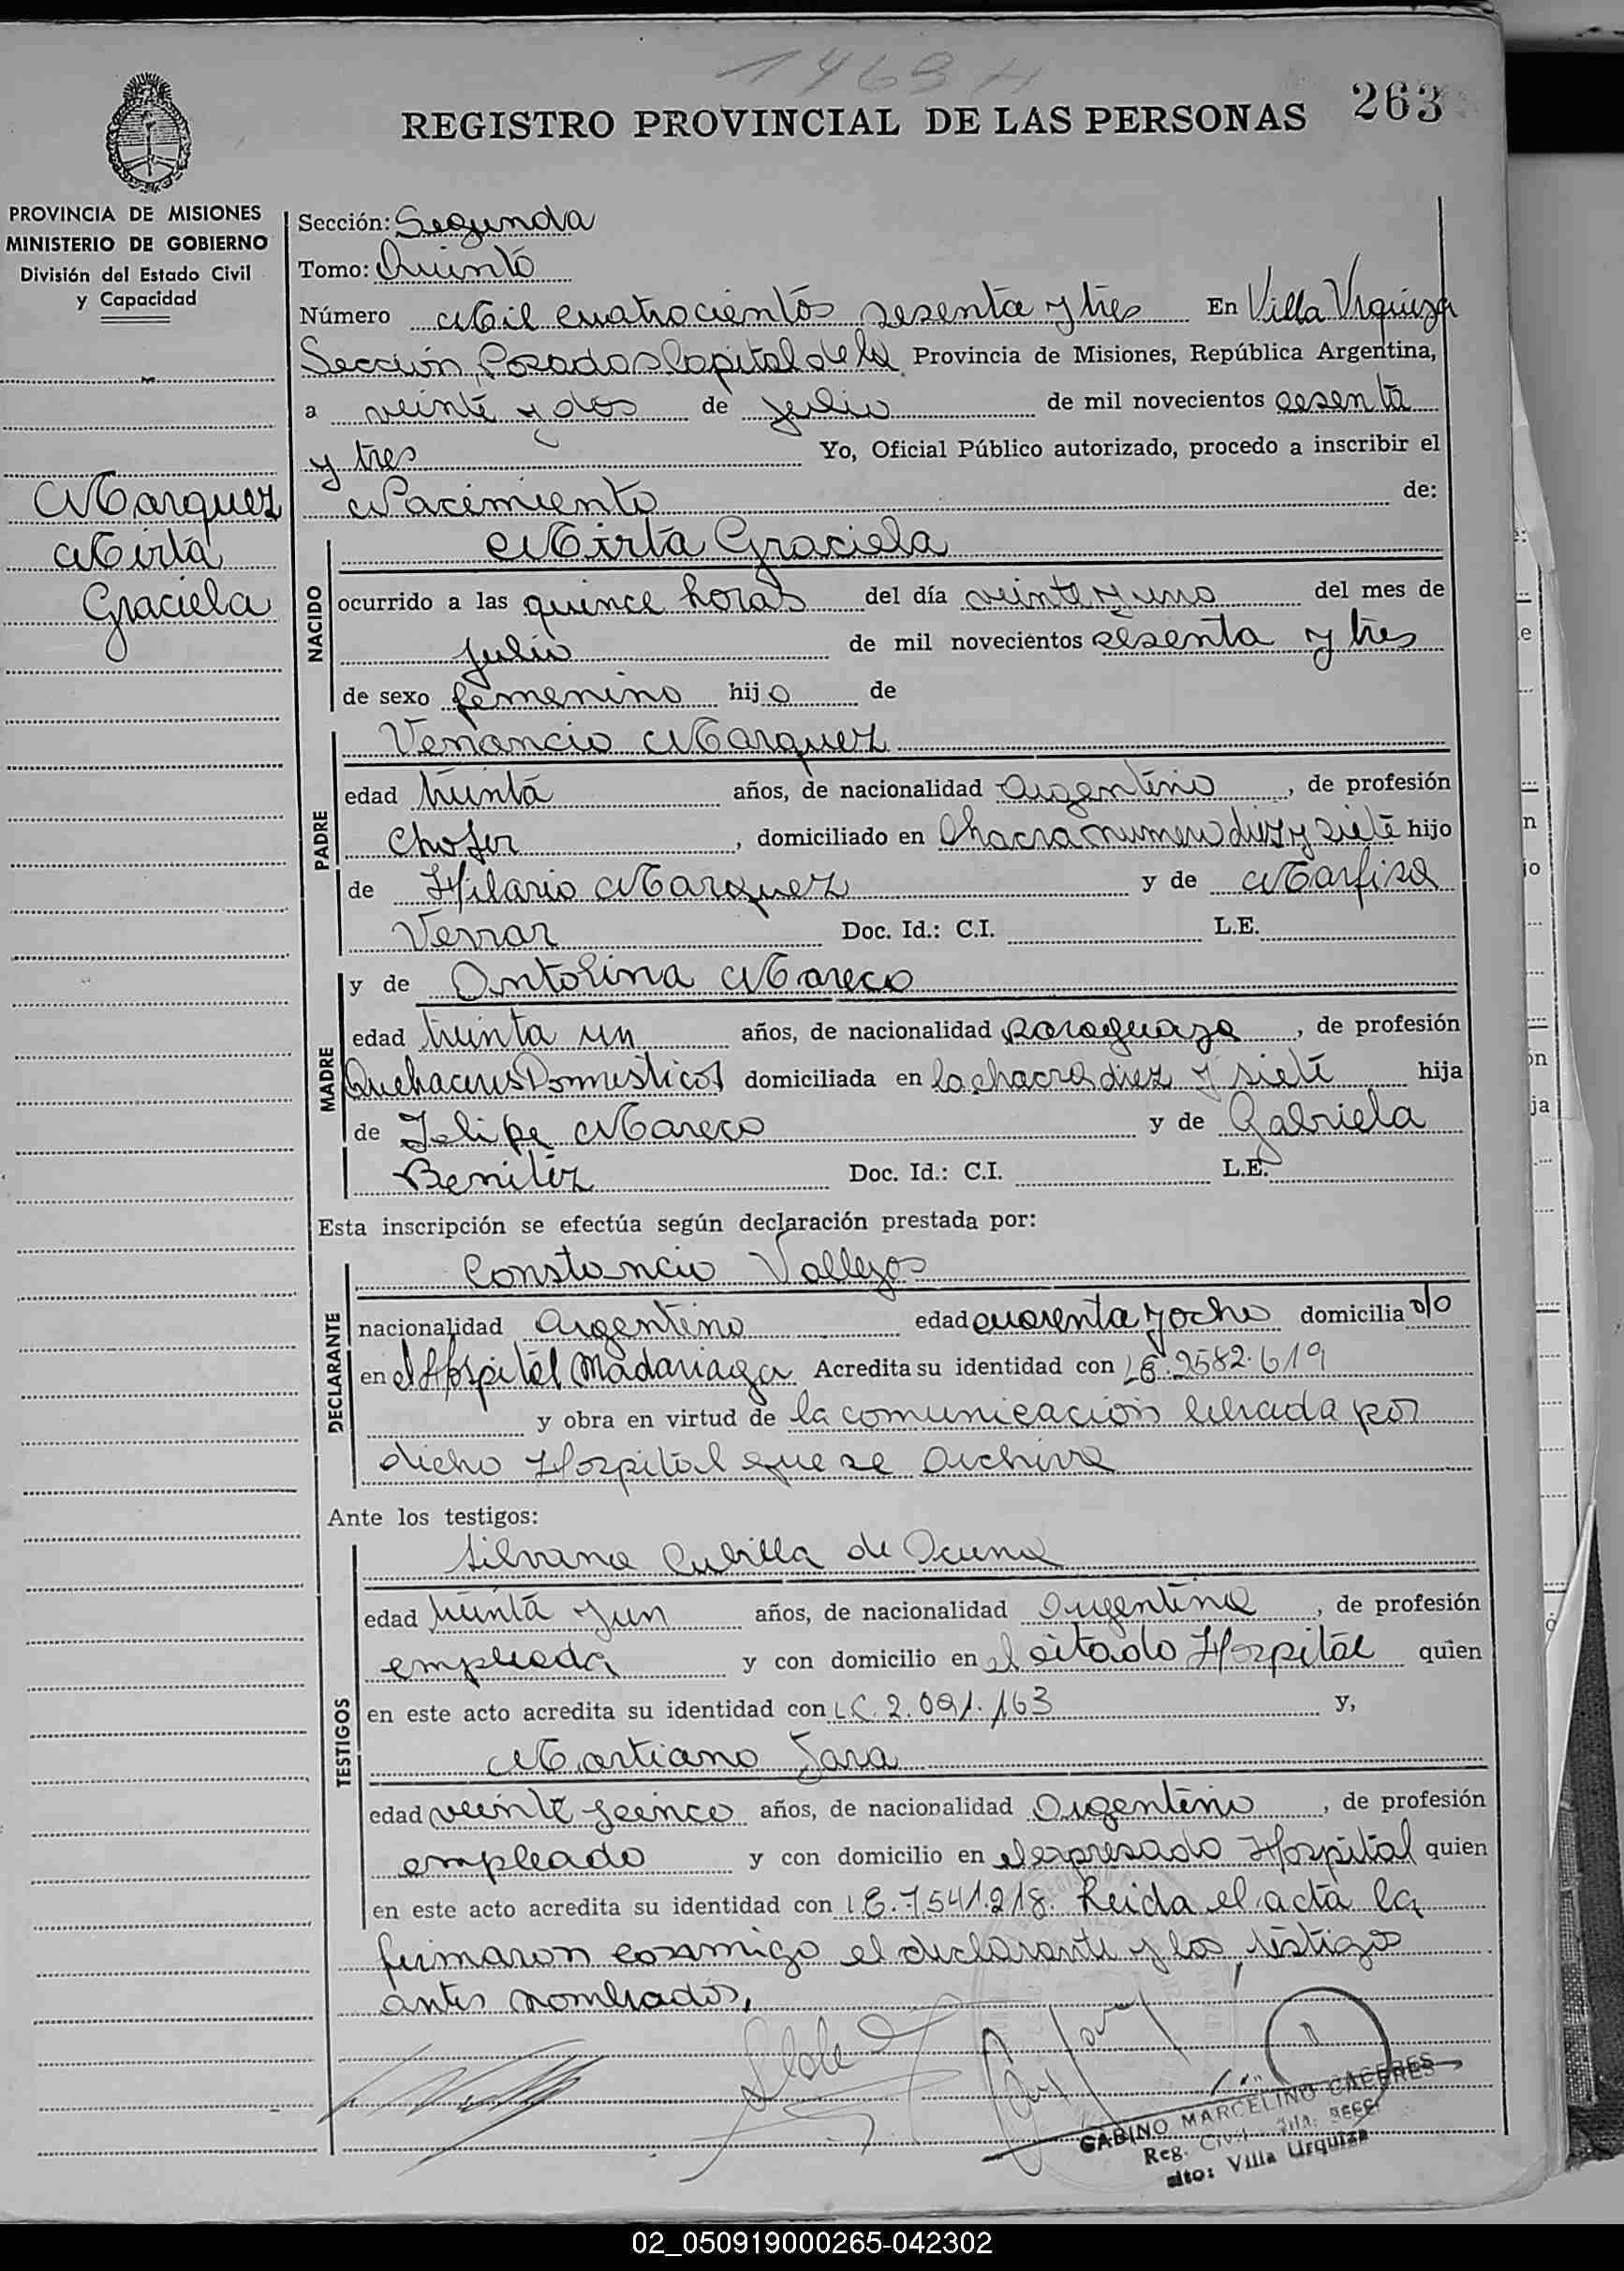 1463 H
REGISTRO PROVINCIAL DE LAS PERSONAS 263
PROVINCIA DE MISIONES
MINISTERIO DE GOBIERNO
División del Estado Civil
y Capacidad
Marquez
Mirta
Graciela
Sección: Segunda
Tomo: Quinto
Número Mil cuatrocientos sesenta y tres En Villa Urquiza
Sección, Posadas Capital de la Provincia de Misiones, República Argentina,
a veinte y dos de julio de mil novecientos sesenta
y tres Yo, Oficial Público autorizado, procedo a inscribir el
Nacimiento de:
NACIDO
Mirta Graciela
ocurrido a las quince horas del día veinte y uno del mes de
julio de mil novecientos sesenta y tres
de sexo femenino hijo de
PADRE
Venancio Marquez
edad treinta años, de nacionalidad argentino, de profesión
Chofer, domiciliado en Chacra numero diez y siete hijo
de Hilario Marquez y de Marfisa
Verrar Doc. Id.: C.I. L.E.
MADRE
y de Antolina Mareco
edad treinta un años, de nacionalidad paraguaya, de profesión
Quehaceres Domesticos domiciliada en la chacra diez y siete hija
de Felipe Mareco y de Gabriela
Benitez Doc. Id.: C.I. L.E.
Esta inscripción se efectúa según declaración prestada por:
DECLARANTE
Constancio Vallejos
nacionalidad argentino edad cuarenta y ocho domicilia do
en el Hospital Madariaga Acredita su identidad con LE. 2582.619
y obra en virtud de la comunicacion librada por
dicho Hospital que se archiva
Ante los testigos:
TESTIGOS
Silvana Cubilla de Acuna
edad treinta y un años, de nacionalidad Argentina, de profesión
empleada y con domicilio en el citado Hospital quien
en este acto acredita su identidad con LC. 2.091.163 y,
Martiano Jara
edad veinte y cinco años, de nacionalidad Argentino, de profesión
empleado y con domicilio en el expresado Hospital quien
en este acto acredita su identidad con LE. 7541.218. Leida el acta la
firmaron conmigo el declarante y los testigos
antes nombrados,
GABINO MARCELINO CACERES
Reg. Civil 2da. Secc.
Villa Urquiza
02_050919000265-042302